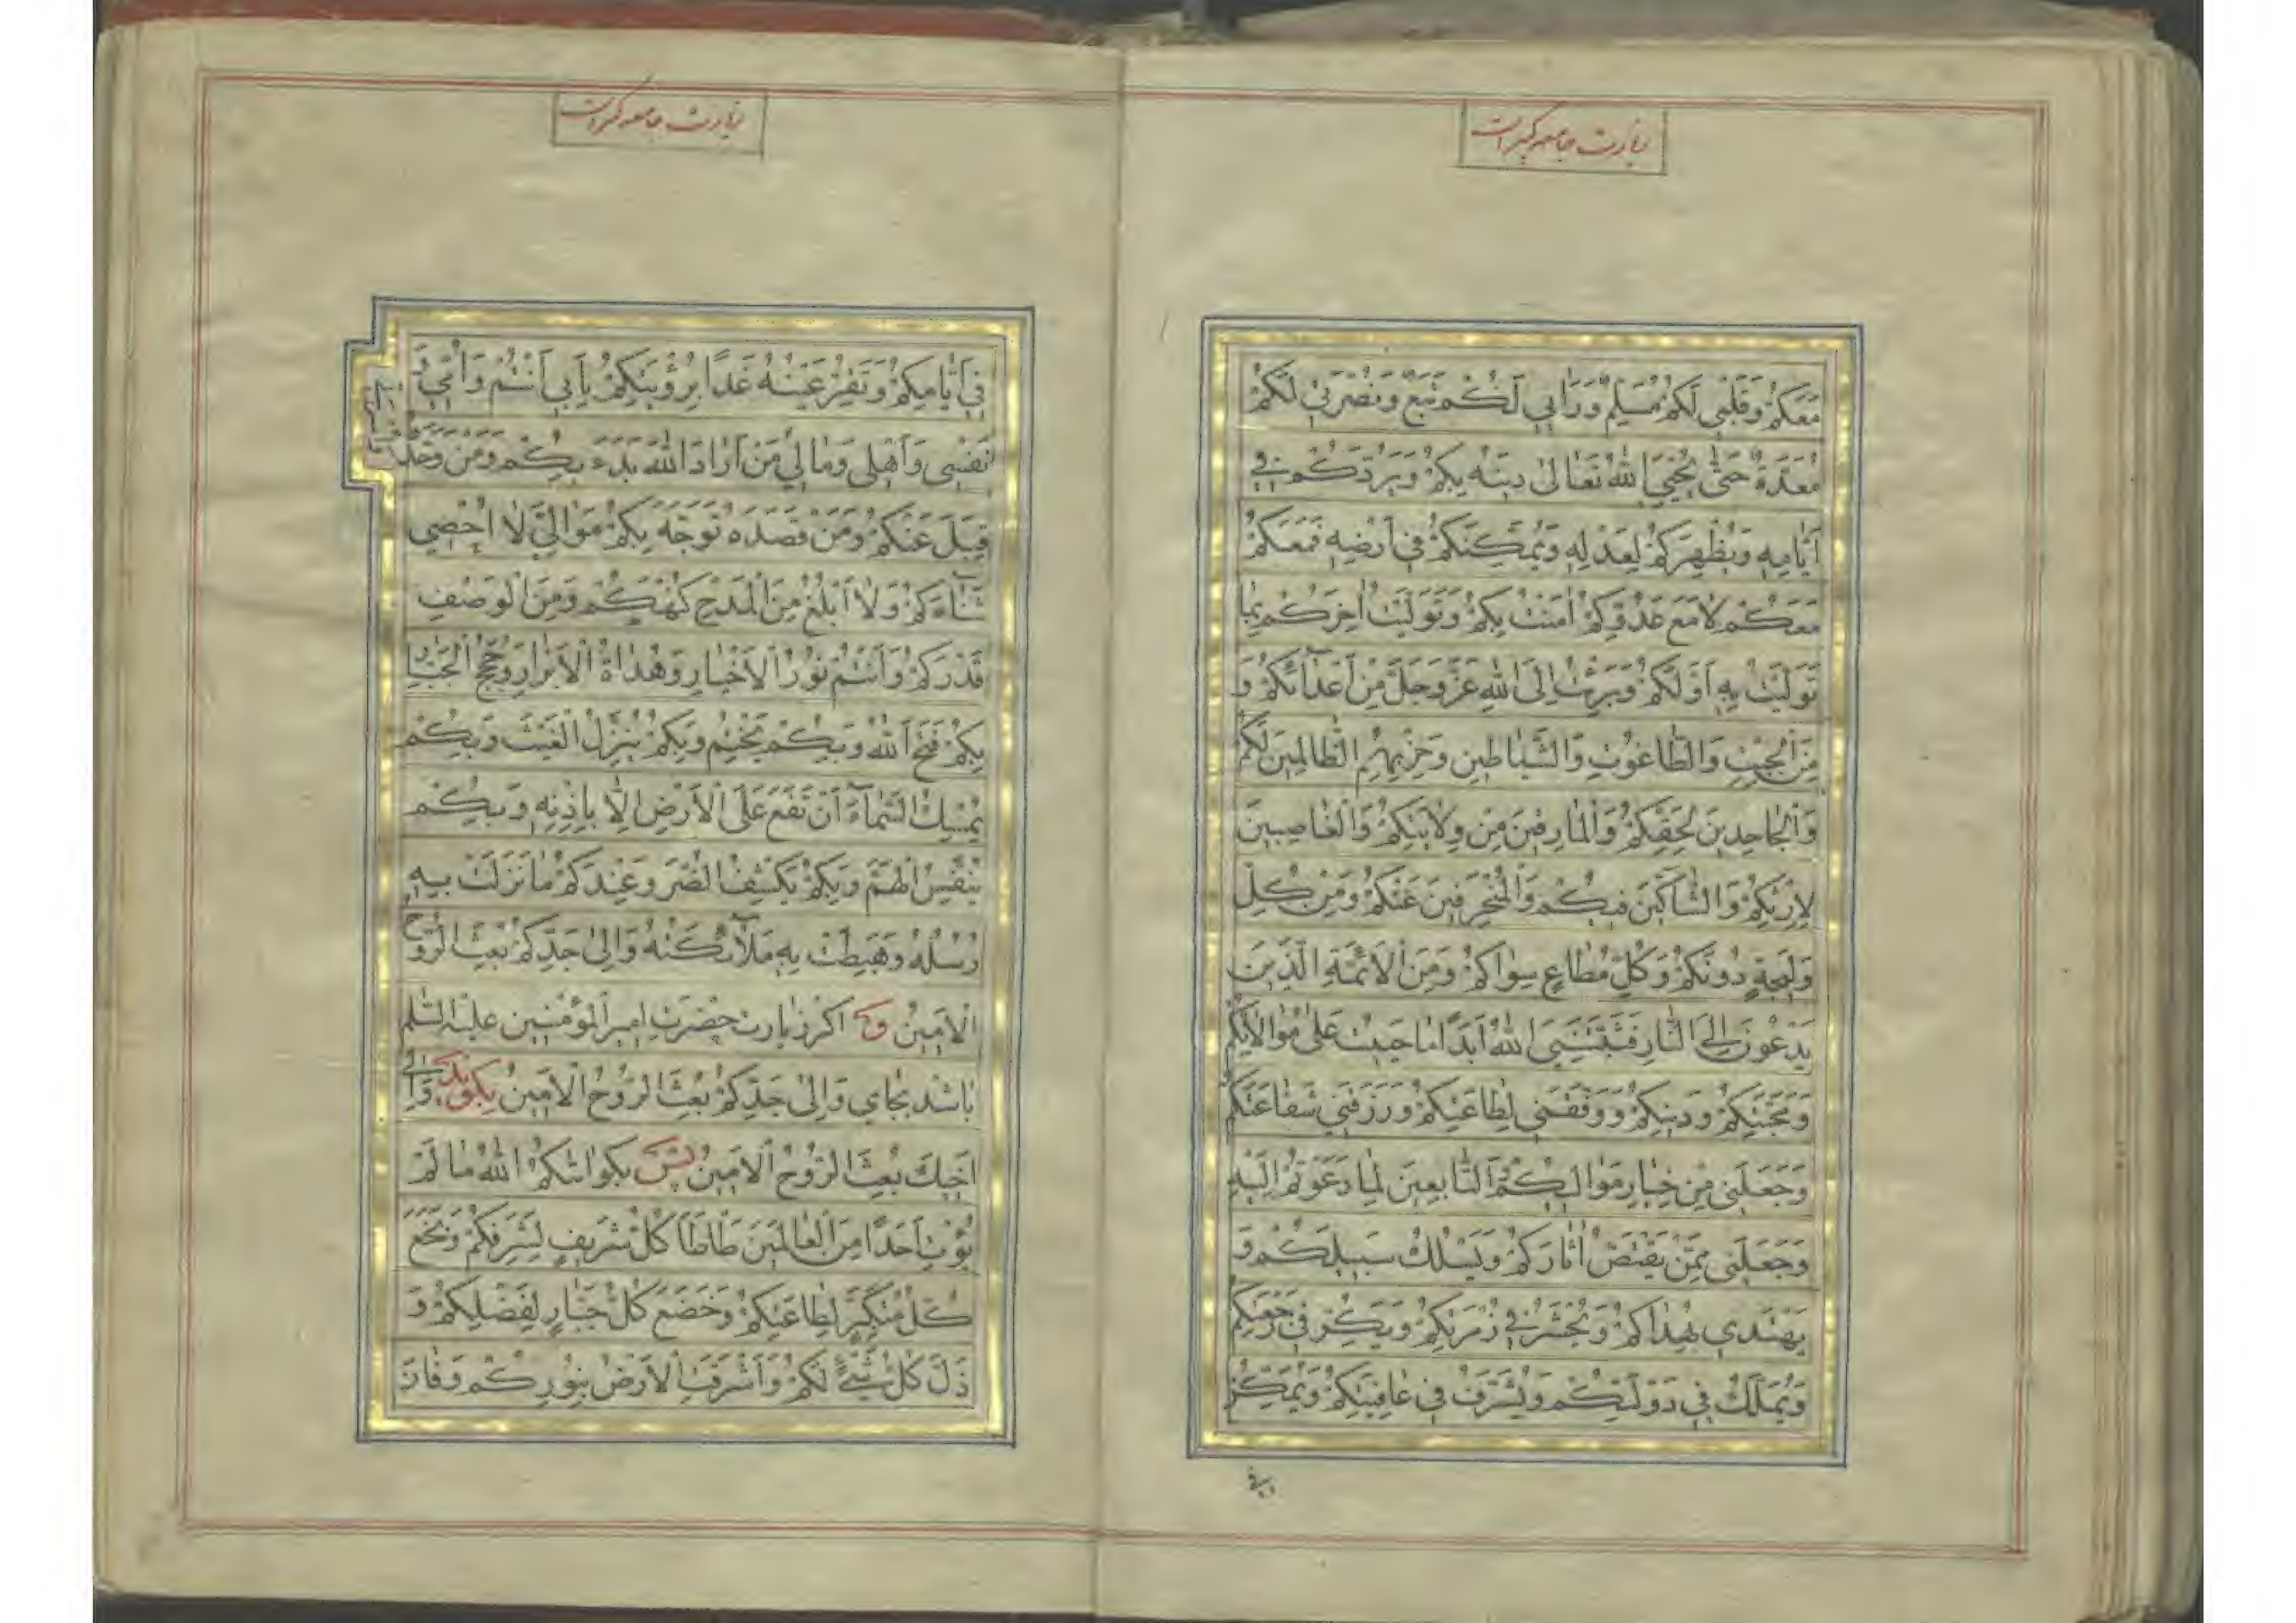 زیارت جامعه کبیر است
مَعَكُمْ وَقَلْبِي لَكُمْ مُسَلِّمٌ وَرَأْيِي لَكُمْ تَبَعٌ وَنُصْرَتِي لَكُمْ
مُعَدَّةٌ حَتّٰى يُحْيِيَ اللّٰهُ تَعَالىٰ دِينَهُ بِكُمْ وَيَرُدَّكُمْ فِي
اَيَّامِهِ وَيُظْهِرَكُمْ لِعَدْلِهِ وَيُمَكِّنَكُمْ فِي اَرْضِهِ فَمَعَكُمْ
مَعَكُمْ لَا مَعَ عَدُوِّكُمْ اٰمَنْتُ بِكُمْ وَتَوَلَّيْتُ اٰخِرَكُمْ بِمَا
تَوَلَّيْتُ بِهِ اَوَّلَكُمْ وَبَرِئْتُ اِلَى اللّٰهِ عَزَّ وَجَلَّ مِنْ اَعْدَآئِكُمْ وَ
مِنَ الْجِبْتِ وَالطَّاغُوتِ وَالشَّيَاطِينِ وَحِزْبِهِمُ الظَّالِمِينَ لَكُمْ
وَالْجَاحِدِينَ لِحَقِّكُمْ وَالْمَارِقِينَ مِنْ وِلَايَتِكُمْ وَالْغَاصِبِينَ
لِاِرْثِكُمْ وَالشَّآكِّينَ فِيكُمْ وَالْمُنْحَرِفِينَ عَنْكُمْ وَمِنْ كُلِّ
وَلِيجَةٍ دُونَكُمْ وَكُلِّ مُطَاعٍ سِوَاكُمْ وَمِنَ الْاَئِمَّةِ الَّذِينَ
يَدْعُونَ اِلَى النَّارِ فَثَبَّتَنِيَ اللّٰهُ اَبَدًا مَا حَيِيتُ عَلىٰ مُوَالَاتِكُمْ
وَمَحَبَّتِكُمْ وَدِينِكُمْ وَوَفَّقَنِي لِطَاعَتِكُمْ وَرَزَقَنِي شَفَاعَتَكُمْ
وَجَعَلَنِي مِنْ خِيَارِ مَوَالِيكُمُ التَّابِعِينَ لِمَا دَعَوْتُمْ اِلَيْهِ
وَجَعَلَنِي مِمَّنْ يَقْتَصُّ اٰثَارَكُمْ وَيَسْلُكُ سَبِيلَكُمْ وَ
يَهْتَدِي بِهُدَاكُمْ وَيُحْشَرُ فِي زُمْرَتِكُمْ وَيَكُرُّ فِي رَجْعَتِكُمْ
وَيُمَلَّكُ فِي دَوْلَتِكُمْ وَيُشَرَّفُ فِي عَافِيَتِكُمْ وَيُمَكَّنُ
زیارت جامعه کبیر است
فِي اَيَّامِكُمْ وَتَقِرُّ عَيْنُهُ غَدًا بِرُؤْيَتِكُمْ بِاَبِي اَنْتُمْ وَاُمِّي وَ
نَفْسِي وَاَهْلِي وَمَالِي مَنْ اَرَادَ اللّٰهَ بَدَءَ بِكُمْ وَمَنْ وَحَّدَهُ
قَبِلَ عَنْكُمْ وَمَنْ قَصَدَهُ تَوَجَّهَ بِكُمْ مَوَالِيَّ لَا اُحْصِي
ثَنَآءَكُمْ وَلَا اَبْلُغُ مِنَ الْمَدْحِ كُنْهَكُمْ وَمِنَ الْوَصْفِ
قَدْرَكُمْ وَاَنْتُمْ نُورُ الْاَخْيَارِ وَهُدَاةُ الْاَبْرَارِ وَحُجَجُ الْجَبَّارِ
بِكُمْ فَتَحَ اللّٰهُ وَبِكُمْ يَخْتِمُ وَبِكُمْ يُنَزِّلُ الْغَيْثَ وَبِكُمْ
يُمْسِكُ السَّمَآءَ اَنْ تَقَعَ عَلَى الْاَرْضِ اِلَّا بِاِذْنِهِ وَبِكُمْ
يُنَفِّسُ الْهَمَّ وَبِكُمْ يَكْشِفُ الضُّرَّ وَعِنْدَكُمْ مَا نَزَلَتْ بِهِ
رُسُلُهُ وَهَبَطَتْ بِهِ مَلَآئِكَتُهُ وَاِلىٰ جَدِّكُمْ بُعِثَ الرُّوحُ
الْاَمِينُ و اگر زیارت حضرت امیر المؤمنین علیه السلم
باشد بجای وَاِلىٰ جَدِّكُمْ بُعِثَ الرُّوحُ الْاَمِينُ بکوید وَاِلىٰ
اَخِيكَ بُعِثَ الرُّوحُ الْاَمِينُ پس بکو اٰتَاكُمُ اللّٰهُ مَا لَمْ
يُؤْتِ اَحَدًا مِنَ الْعَالَمِينَ طَأْطَأَ كُلُّ شَرِيفٍ لِشَرَفِكُمْ وَبَخَعَ
كُلُّ مُتَكَبِّرٍ لِطَاعَتِكُمْ وَخَضَعَ كُلُّ جَبَّارٍ لِفَضْلِكُمْ وَ
ذَلَّ كُلُّ شَيْءٍ لَكُمْ وَاَشْرَقَتِ الْاَرْضُ بِنُورِكُمْ وَفَازَ